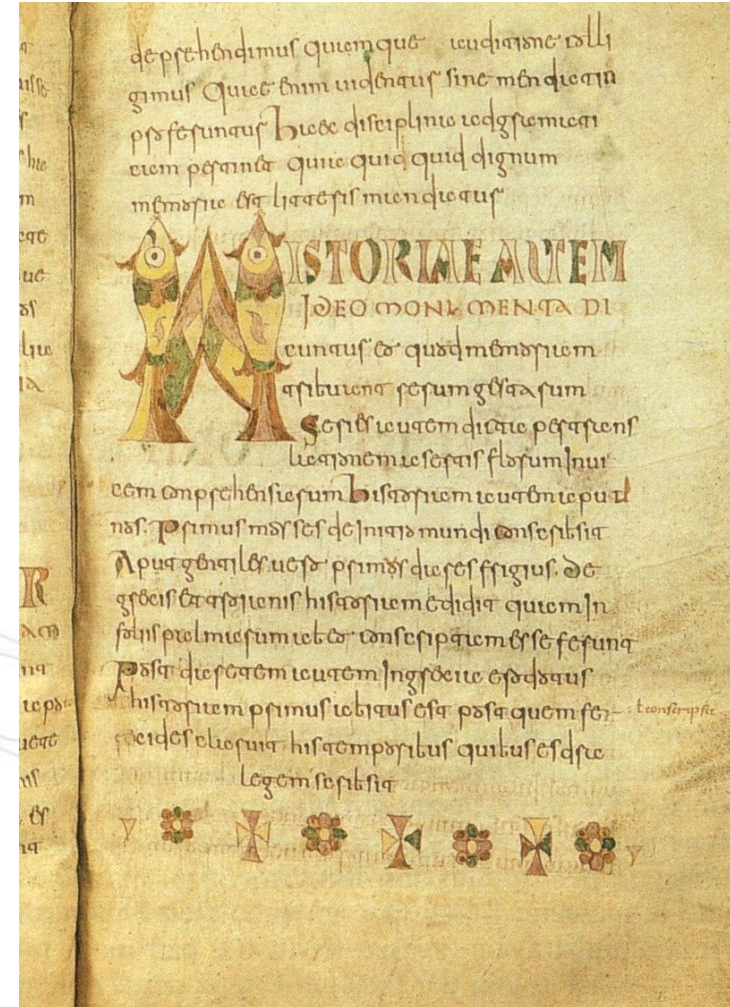 deprehendimus Quam que auditione colli
gimus Quae enim uidentur sine mendacio
proferuntur haec disciplina ad gramati
cam pertinet Quia quid quid dignum
memoria est litteris mandatur
HISTORIAE AUTEM
IDEO MONUMENTA DI
cuntur eo quod memoriam
tribuant rerum gestarum
Series autem dicta per trans
lationem a sertis florum Inui
cem conprehensarum historiam autem aput
nos. Primus moyses de Initio mundi conscribsit
Aput gentiles uero primus dares frigius. De
grecis et troianis historiam edidit quam In
foliis palmarum ab eo conscriptam esse ferunt
Post daretem autem In grecia erodotus
historiam primus abitus est post quem fer
recides claruit his temporibus quibus esdra
legem scribsit